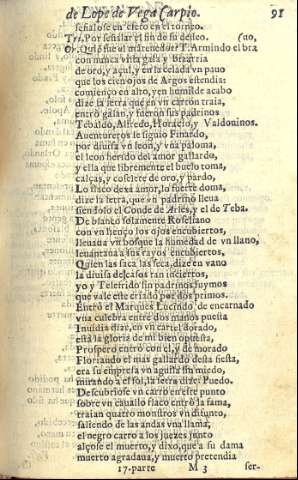 de Lope de Vega Carpio. 91
señalose en efeto en el torneo.
Tri. Por señalar el fin de su deseo. (ño,
Or. Quiẽ fue el mãtenedor? T. Armindo el bra
con nunca vista gala y
de oro, y açul, y en la celada vn pauo
que los cien ojos de Argos estendia:
començo en alto, y en humilde acabo
dize la letra que en vn carton traia,
entrò galan, y fueron sus padrinos
Tebaldo, Alfredo, Horacio, y Valdouinos.
Auentureros le siguio Finardo,
por diuisa vn leon, y vna paloma,
el leon herido del amor gallardo,
y ella que libremente el buelo toma,
calças, y coselete de oro, y pardo,
Lo flaco desa amor, lo fuerte doma,
dize la letra, que vn padrino lleua
siendolo el Conde de Aries, y el de Teba.
De blanco solamente Roseliano
con vn lienço los ojos encubiertos,
lleuaua vn bosque la humedad de vn llano,
leuantaua a sus rayos encubiertos,
Quien las saca las seca, dize en vano
la diuisa de casos tan inciertos,
yo y Telefrido sin padrinos fuymos
que vale este criado por dos primos.
Entrò el Marques Lucindo, de encarnado
vna culebra entre dos manos puesta
Inuidia dize, en vn cartel dorado,
està la gloria de mi bien opuesta,
Prospero entrò con el, y de morado
Floriando el mas gallardo desta fiesta,
era su empresa vn aguila sin miedo,
mirando al sol, la letra dize Puedo.
Descubriose vn carro en este punto
sobre vn cauallo flaco entrò la fama,
traian quatro monstros vn difunto,
saliendo de las andas vna llama,
el negro carro a los juezes junto
alçose el muerto, y dixo, que a su dama
muerto agradaua, y muerto pretendia
17. parte M 3 ser-